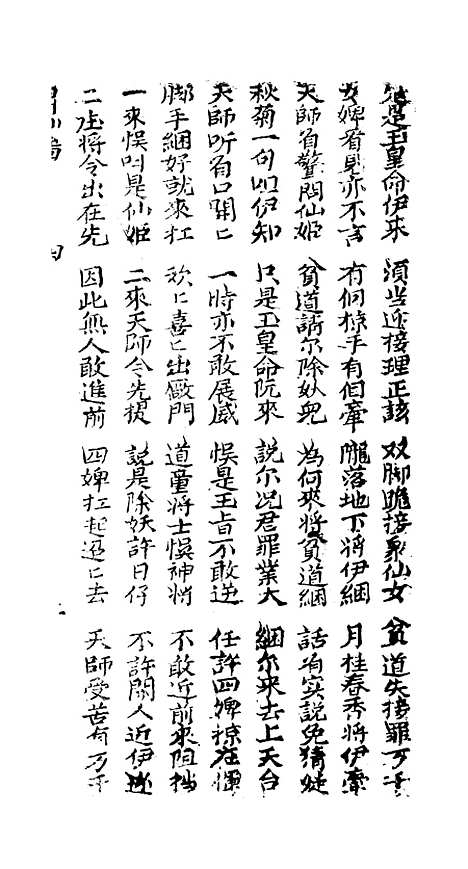 是玉皇命伊來 須当迎接理正該 双脚跪接衆仙女 貧道失接罪万千
女婢看見亦不言 有個掠手有個牽 隴落地下將伊綑 月桂春香將伊牽
天師着驚問仙姬 貧道請尔除妙鬼 為何來將貧道綑 話着实說免猜疑
秋菊一句伊知 只是玉皇命阮來 說尔冗君罪業大 綑尔來去上天台
天師听着口開匕 一時亦不敢展威 悞是玉旨不敢逆 任許四婢掠在
脚手綑好就來扛 欢匕喜匕出廠門 道童將士悞神將 不敢近前來阻挡
一來悞叫是仙姬 二來天師令先提 說是除妖許日仔 不許閑人近伊
二將令出在先 因此無人敢進前 四婢扛起匕去 天師受苦有万千